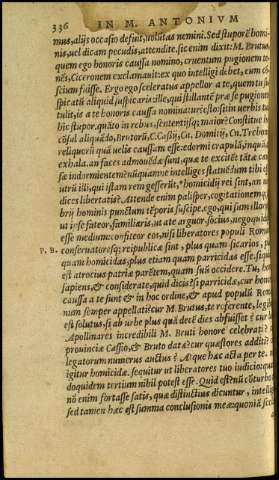 336 IN M. ANTONIVM
mus, alijs occasio defuit, volũtas nemini. Sed stuporẽ homi-
nis, uel dicam pecudis, attendite. sic enim dixit: M. Brutus,
quem ego honoris caussa nomino, cruentum pugionem te-
nẽs, Ciceronem exclamauit: ex quo intelligi debet, eum cõ
scium fuisse. Ergo ego sceleratus appellor a te, quem tu su
spicatũ aliquid suspicaris: ille, qui stillantẽ præ se pugionẽ
tulit, is a te honoris caussa nominatur? Esto. sit in uerbis tuis
hic stupor. quãto in rebus, sententijsq; maior? Constitue hoc
cõsul aliquãdo, Brutorũ, C. Cassij, Cn. Domitij, Cn. Trebonij
reliquorũ quã uelis caussam esse: edormi crapulã, inquam,
exhala. an faces admouẽdæ sunt, quæ te excitẽt tãtæ caus-
sæ indormientem? nũquamne intelliges statuẽdum tibi esse,
utrũ illi, qui istam rem gesserũt, homicidij rei sint, an uin-
dices libertatis? Attende enim palisper, cogitationemq́;
brij hominis punctũm tẽporis suscipe. ego, qui sum illorum,
ut ipse fateor, familiaris, ut a te arguor, socius, nego quidquam
esse medium: confiteor eos, nisi liberatores populi Romani
P. R. conseruatoresq́; reipublicæ sint, plus quam sicarios, plus
quam homicidas, plus etiam quam parricidas esse. siquidem
est atrocius patriæ parẽtem, quam suũ occidere. Tu, homo
sapiens, & considerate, quid dicis? si parricidæ, cur honoris
caussa a te sunt & in hoc ordine, & apud populũ Romanũ
num semper appellati? cur M. Brutus, te referente, legibus
est solutus, si ab urbe plus quã decẽ dies abfuisset? cur ludi
Apollinares incredibili M. Bruti honore celebrati?
prouinciæ Cassio, & Bruto datæ? cur quæstores additi?
legatorum numerus auctus? Atque hæc acta per te.
igitur homicidæ. sequitur ut liberatores tuo iudicio: quan
doquidem tertium nihil potest esse. Quid est? nũ cõturbo
nõ enim fortasse satis, quæ distinctius dicuntur, intelligis.
sed tamen hæc est summa conclusionis meæ: quoniã scelere